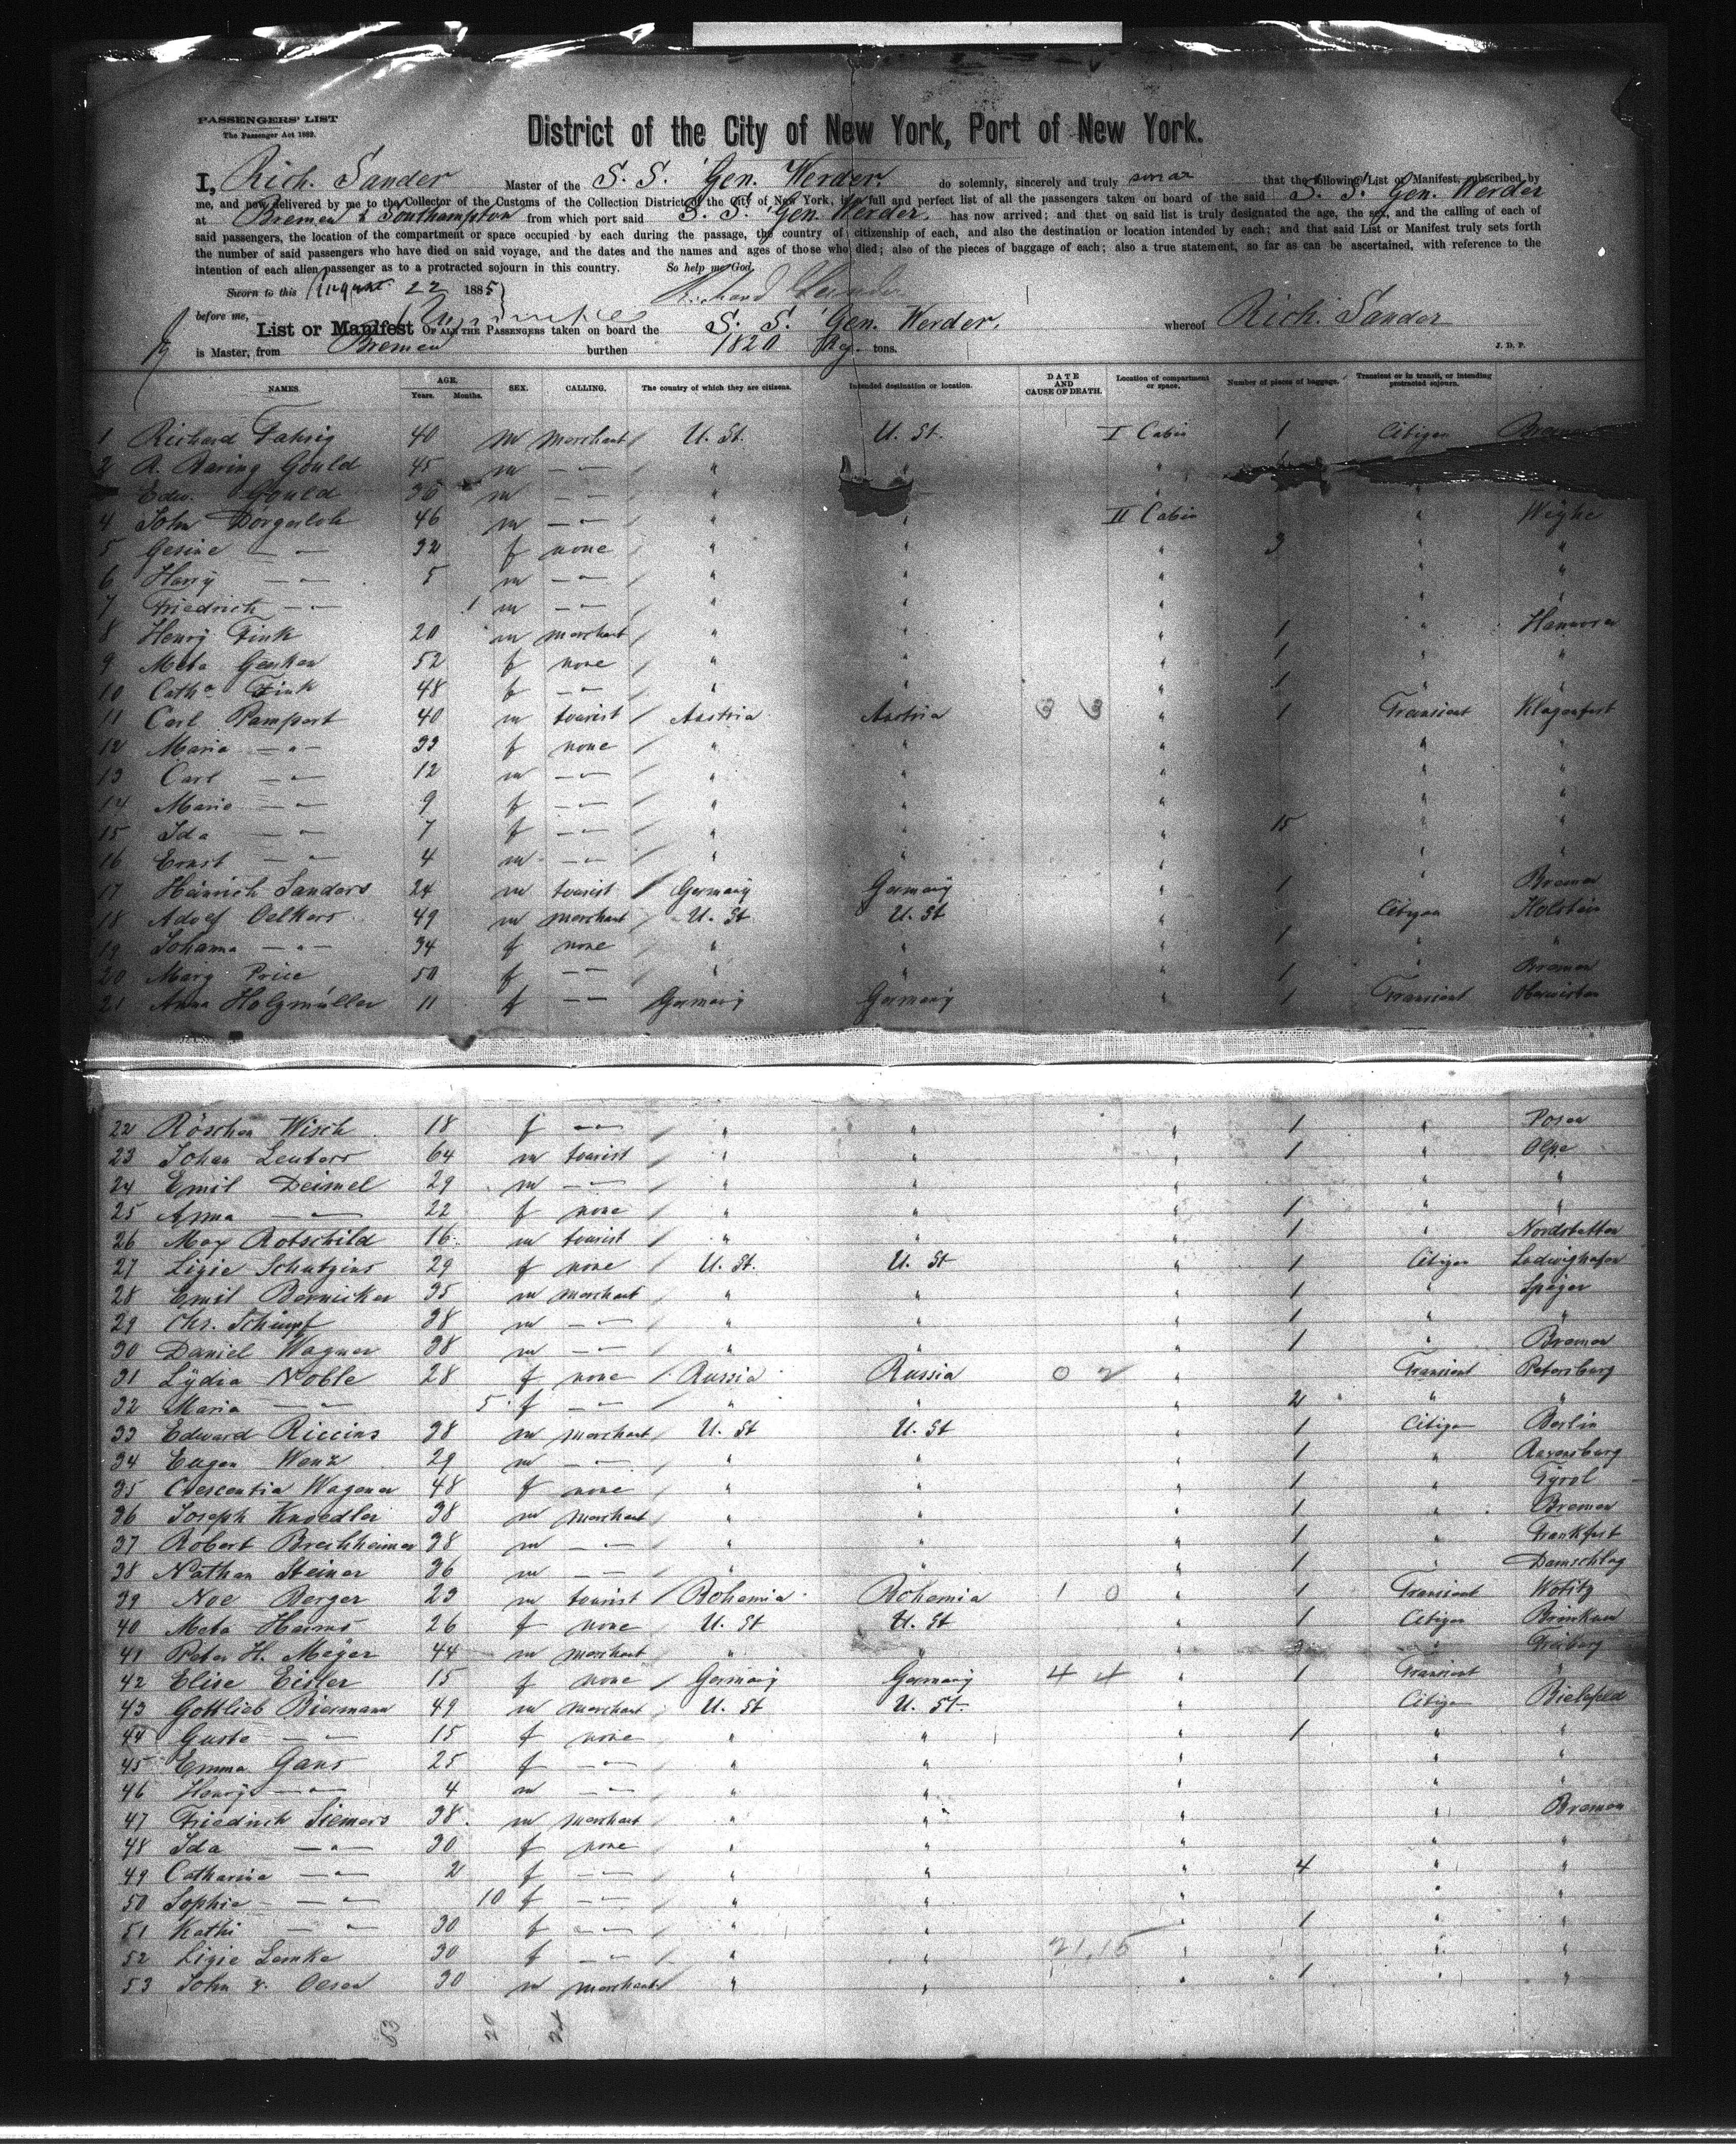 PASSENGERS' LIST
The Passenger Act 1882.
District of the City of New York, Port of New York.
I, Rich. Sander Master of the S. S. Gen. Werder. do solemnly, sincerely and truly swear that the following List or Manifest, subscribed by
me, and now delivered by me to the Collector of the Customs of the Collection District of the City of New York, is a full and perfect list of all the passengers taken on board of the said S. S. Gen. Werder
at Bremen & Southampton from which port said S. S. Gen. Werder. has now arrived; and that on said list is truly designated the age, the sex, and the calling of each of
said passengers, the location of the compartment or space occupied by each during the passage, the country of citizenship of each, and also the destination or location intended by each; and that said List or Manifest truly sets forth
the number of said passengers who have died on said voyage, and the dates and the names and ages of those who died; also of the pieces of baggage of each; also a true statement, so far as can be ascertained, with reference to the
intention of each alien passenger as to a protracted sojourn in this country. So help me God,
Sworn to this August 22 1885 Richard Sander
before me,
List or Manifest OF ALL THE PASSENGERS taken on board the S. S. Gen. Werder, whereof Rich. Sander
is Master, from Bremen burthen 1820 Reg. tons. J. D. P.
NAMES. AGE. Years. Months. SEX. CALLING. The country of which they are citizens. Intended destination or location. DATE AND CAUSE OF DEATH. Location of compartment or space. Number of pieces of baggage. Transient or in transit, or intending protracted sojourn.
1 Richard Fahrig 40 m merchant U. St. U. St. I Cabin 1 Citizen Bremen
2 A. Baring Gould 45 m — " — " " "
Edw. Gould 36 m — " — " "
4 John Dörgeloh 46 m — " — " " II Cabin " Weyhe
5 Gesine — " — 32 f none " " " 3 " "
6 Harry — " — 5 m — " — " " " " "
7 Friedrich — " — 1 m — " — " " " " "
8 Henry Fink 20 m merchant " " " 1 " Hannover
9 Meta Gerken 52 f none " " " 1 " "
10 Cath. Fink 48 f — " — " " " 1 " "
11 Carl Pampert 40 m tourist Austria Austria 3 3 " 1 Transient Klagenfurt
12 Maria — " — 33 f none " " " " "
13 Carl — " — 12 m — " — " " " " "
14 Marie — " — 9 f — " — " " " " "
15 Ida — " — 7 f — " — " " " 15 " "
16 Ernst — " — 4 m — " — " " " " "
17 Heinrich Sanders 24 m tourist Germany Germany " 1 " Bremen
18 Adolf Oelkers 49 m merchant U. St U. St " Citizen Holstein
19 Johanna — " — 34 f none " " " 1 " "
20 Mary Price 50 f — " — " " " 1 " Bremen
21 Anna Holzmüller 11 f — " — Germany Germany " 1 Transient
22 Röschen Wisch 18 f — " — " " " 1 " Posen
23 Johan Leubers 64 m tourist " " " 1 " Olpe
24 Emil Deimel 29 m — " — " " " " "
25 Anna — " — 22 f none " " " 1 " "
26 Max Rotschild 16 m tourist " " " 1 " Nordstetten
27 Lizie Schutzius 29 f none U. St. U. St " 1 Citizen Ludwighafen
28 Emil Bernicker 35 m merchant " " " 1 " Speyer
29 Chr. Schimpf 38 m — " — " " " 1 " "
30 Daniel Wagner 38 m — " — " " " 1 " Bremen
31 Lydia Noble 28 f none Russia Russia 0 2 " Transient Petersburg
32 Maria — " — 5 f — " — " " " 2 " "
33 Edward Riccius 38 m merchant U. St U. St " 1 Citizen Berlin
34 Eugen Wenz 29 m — " — " " " 1 " Ravensburg
35 Crescentia Wagener 48 f none " " " 1 " Tyrol
36 Joseph Knoedler 38 m merchant " " " 1 " Bremen
37 Robert Brechheimer 38 m — " — " " " 1 " Frankfurt
38 Nathan Steiner 36 m — " — " " " 1 " Damschlag
39 Noe Berger 23 m tourist Bohemia Bohemia 1 0 " 1 Transient Wotitz
40 Meta Heims 26 f none U. St U. St " 1 Citizen Brinkum
41 Peter H. Meyer 44 m merchant " " " 3 " Freiburg
42 Elise Eisler 15 f none Germany Germany 4 4 " 1 Transient "
43 Gottlieb Biermann 49 m merchant U. St U. St. " Citizen Bielefeld
44 Guste — " — 15 f none " " " 1 " "
45 Emma Gans 25 f — " — " " " " "
46 Henry — " — 4 m — " — " " " " "
47 Friedrich Siemers 38 m merchant " " " " Bremen
48 Ida — " — 30 f none " " " " "
49 Catharina — " — 2 f — " — " " " 4 " "
50 Sophie — " — 10 f — " — " " " " "
51 Kathi — " — 30 f — " — " " " 1 " "
52 Lizie Lemke 30 f — " — " " 21.15 " " "
53 John v. Oesen 30 m merchant " " " 1 " "
53 20 24